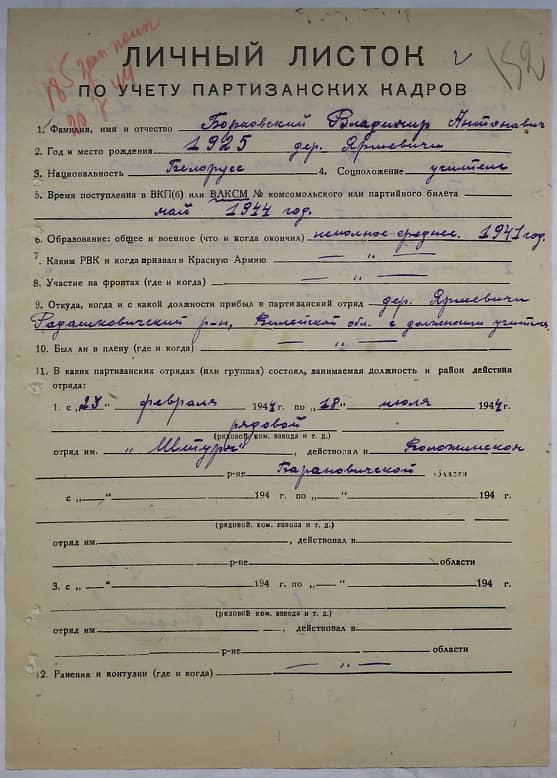 185
152
ЛИЧНЫЙ ЛИСТОК
ПО УЧЕТУ ПАРТИЗАНСКИХ КАДРОВ
1. Фамилия, имя и отчество Борковский Владимир Антонович
2. Год и место рождения 1925 дер. Яршевичи
3. Национальность Белорусс 4. Соцположение учитель
5. Время поступления в ВКП(б) или ВЛКСМ № комсомольского или партийного билета
май 1944 год.
6. Образование: общее и военное (что и когда окончил) неполное среднее. 1941 год.
7. Каким РВК и когда призван в Красную Армию — „ —
8. Участие на фронтах (где и когда) — „ —
9. Откуда, когда и с какой должности прибыл в партизанский отряд дер. Яршевичи
Радашковичский р-н, Вилейской обл. с должности учителя
10. Был ли в плену (где и когда) — „ —
11. В каких партизанских отрядах (или группах) состоял, занимаемая должность и район действия
отряда:
1. с „23“ февраля 1944 г. по „18“ июля 1944 г.
рядовой
(рядовой, ком. взвода и т. д.)
отряд им. „Штурм“, действовал в Воложинском
р-не Барановичской области
с „—“ 194 г. по „—“ 194 г.
(рядовой, ком. взвода и т. д.)
отряд им. , действовал в
р-не области
3. с „—“ 194 г. по „—“ 194 г.
(рядовой, ком. взвода и т. д.)
отряд им , действовал в
р-не области
2. Ранения и контузии (где и когда) — „ —